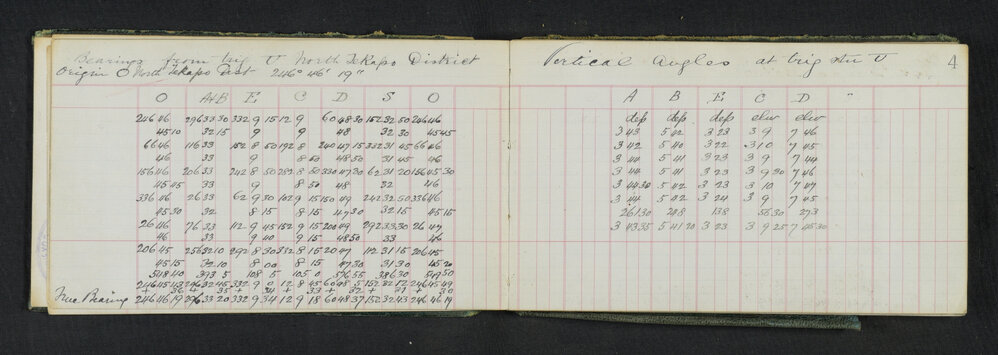 Bearings from trig U North Tekapo District
Origin O North Tekapo Dist 246° 46' 19"
O A+B E C D S O
246 46 296 33 30 332 9 15 12 9 60 48 30 152 32 50 246 46
45 10 32 15 9 9 48 32 30 45 45
66 46 116 33 152 8 50 192 8 240 47 15 332 31 45 66 46
46 33 9 8 50 48 50 31 45 46
156 46 206 33 242 8 50 282 8 50 330 47 30 62 31 20 156 45 30
45 45 33 9 8 50 48 32 46
336 46 26 33 62 9 30 102 9 15 150 49 242 32 50 336 46
45 30 32 8 15 8 15 47 30 32 15 45 15
26 46 76 33 112 9 45 152 9 15 200 49 292 33 30 26 47
46 33 9 40 9 15 48 50 33 46
206 45 256 32 10 292 8 30 332 8 15 20 47 112 31 15 206 45
45 15 32 10 8 00 8 15 47 30 31 30 45 20
548 40 393 5 108 5 105 0 576 55 386 30 549 50
246 45 43 296 32 45 332 9 0 12 8 45 60 48 5 152 32 12 246 45 49
+ 36 + 35 + 34 + 33 + 32 + 31 + 30
True Bearing 246 46 19 296 33 20 332 9 34 12 9 18 60 48 37 152 32 43 246 46 19
Vertical Angles at trig stn U
4
A B E C D "
dep dep dep elev elev
3 43 5 42 3 23 3 9 7 46
3 42 5 40 3 22 3 10 7 45
3 44 5 41 3 23 3 9 7 44
3 44 5 41 3 23 3 9 30 7 46
3 44 30 5 42 3 23 3 10 7 47
3 44 5 42 3 24 3 9 7 45
261 30 248 138 56 30 273
3 43 35 5 41 20 3 23 3 9 25 7 45 30